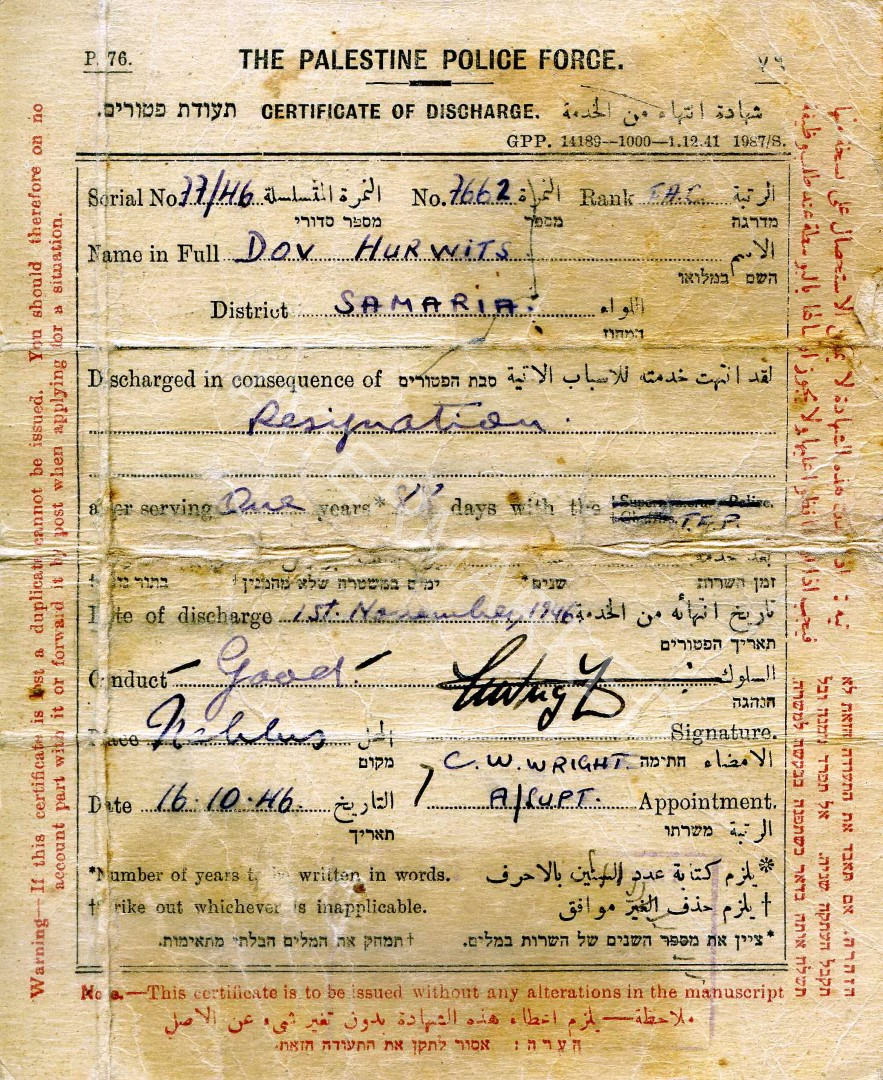 P. 76.
THE PALESTINE POLICE FORCE.
٧٦
תעודת פטורים. CERTIFICATE OF DISCHARGE. شهادة انتهاء من الخدمة
GPP. 14189--1000--1.12.41 1987/S.
Serial No. 77/46 النمرة المتسلسلة No. 7662 النمرة Rank T.A.C. الرتبة
מספר סדורי מספר מדרגה
Name in Full DOV HURWITS الاسم
השם במלואו
District SAMARIA. اللواء
המחוז
Discharged in consequence of סבת הפטורים لقد انتهت خدمته للاسباب الاتية
Resignation.
after serving One years* 88 days with the T.A.P.
بعد خدمة
זמן השרות שנים* ימים במשטרה שלא מהמנין†
Date of discharge 1st. November, 1946 تاريخ انتهائه من الخدمة
תאריך הפטורים
Conduct Good. السلوك
הנהגה
Place Nablus المحل Signature.
מקום C. W. WRIGHT. חתימה الامضاء
Date 16.10.46. التاريخ A/SUPT. Appointment.
תאריך משרתו الرتبة
*Number of years to be written in words. *يلزم كتابة عدد السنين بالاحرف
†Strike out whichever is inapplicable. †يلزم حذف الغير موافق
†תמחק את המלים הבלתי מתאימות. *ציין את מספר השנים של השרות במלים.
Note.—This certificate is to be issued without any alterations in the manuscript
ملاحظة—يلزم اعطاء هذه الشهادة بدون تغير شيء عن الاصل
הערה: אסור לתקן את התעודה הזאת.
Warning—If this certificate is lost a duplicate cannot be issued. You should therefore on no
account part with it or forward it by post when applying for a situation.
הזהרה. אם תאבד את התעודה הזאת לא